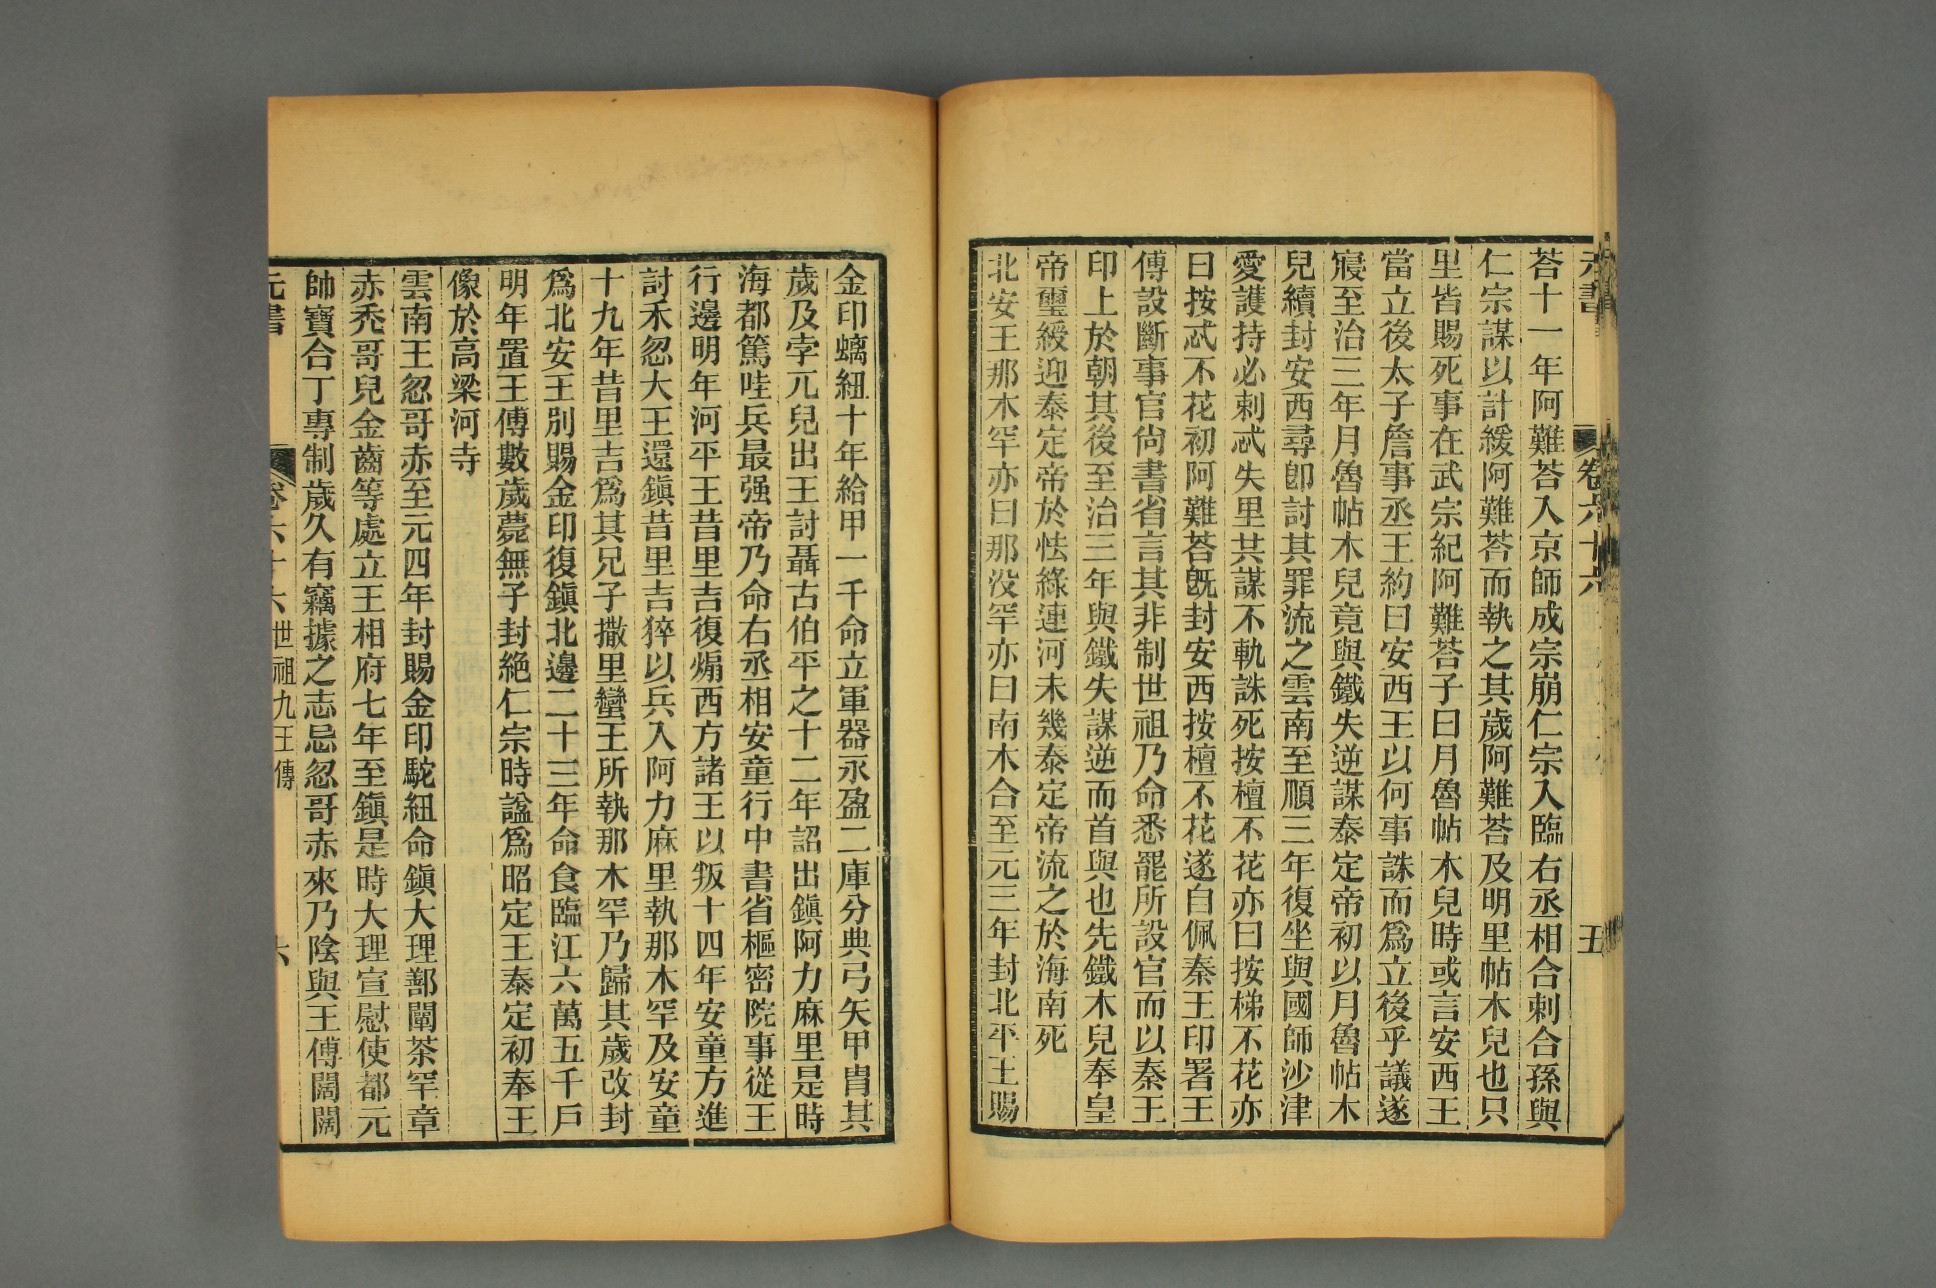 元書 卷六十六 五
荅十一年阿難荅入京師成宗崩仁宗入臨右丞相合刺合孫與
仁宗謀以計緩阿難荅而執之其歲阿難荅及明里帖木兒也只
里皆賜死事在武宗紀阿難荅子曰月魯帖木兒時或言安西王
當立後太子詹事丞王約曰安西王以何事誅而爲立後乎議遂
寢至治三年月魯帖木兒竟與鐵失逆謀泰定帝初以月魯帖木
兒續封安西尋卽討其罪流之雲南至順三年復坐與國師沙津
愛護持必剌忒失里共謀不軌誅死按檀不花亦曰按梯不花亦
曰按忒不花初阿難荅旣封安西按檀不花遂自佩秦王印署王
傅設斷事官尙書省言其非制世祖乃命悉罷所設官而以秦王
印上於朝其後至治三年與鐵失謀逆而首與也先鐵木兒奉皇
帝璽綬迎泰定帝於怯綠連河未幾泰定帝流之於海南死
北安王那木罕亦曰那沒罕亦曰南木合至元三年封北平王賜
金印螭紐十年給甲一千命立軍器永盈二庫分典弓矢甲胄其
歲及孛兀兒出王討聶古伯平之十二年詔出鎭阿力麻里是時
海都篤哇兵最强帝乃命右丞相安童行中書省樞密院事從王
行邊明年河平王昔里吉復煽西方諸王以叛十四年安童方進
討禾忽大王還鎭昔里吉猝以兵入阿力麻里執那木罕及安童
十九年昔里吉爲其兄子撒里蠻王所執那木罕乃歸其歲改封
爲北安王別賜金印復鎭北邊二十三年命食臨江六萬五千戶
明年置王傅數歲薨無子封絕仁宗時諡爲昭定王泰定初奉王
像於高梁河寺
雲南王忽哥赤至元四年封賜金印駝紐命鎭大理鄯闡茶罕章
赤禿哥兒金齒等處立王相府七年至鎭是時大理宣慰使都元
帥寶合丁專制歲久有竊據之志忌忽哥赤來乃陰與王傅闊闊
元書 卷六十六 世祖九王傳 六